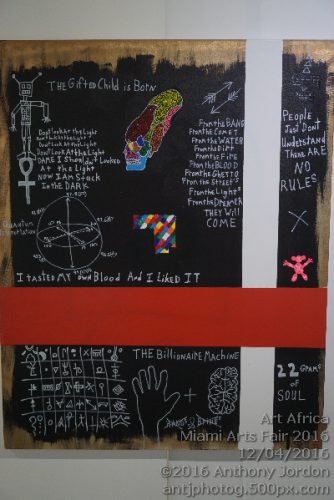 THE GIFTED CHILD IS BORN
Don't Look at the Light
Don't Look at the Light
Don't Look at the Light
Don't Look At the Light
DARE I Should not Looked
At the Light
NOW I AM Stuck
In the DARK
From the BANG
From the COMET
From the WATER
From the Dirt
From the FIRE
From the BLOOD
From the Ghetto
From the Streets
From the Lights
From the DREAMER
THEY Will
COME
PEOPLE
Just Dont
Understand
THERE ARE
NO
RULES
Quantum
I TASTED MY OWN Blood And I LIKED IT
THE Billionaire Machine
+
22 GRAMS
of
SOUL
Art Africa
Miami Arts Fair 2016
12/04/2016
©2016 Anthony Jordon
antjphotog.500px.com